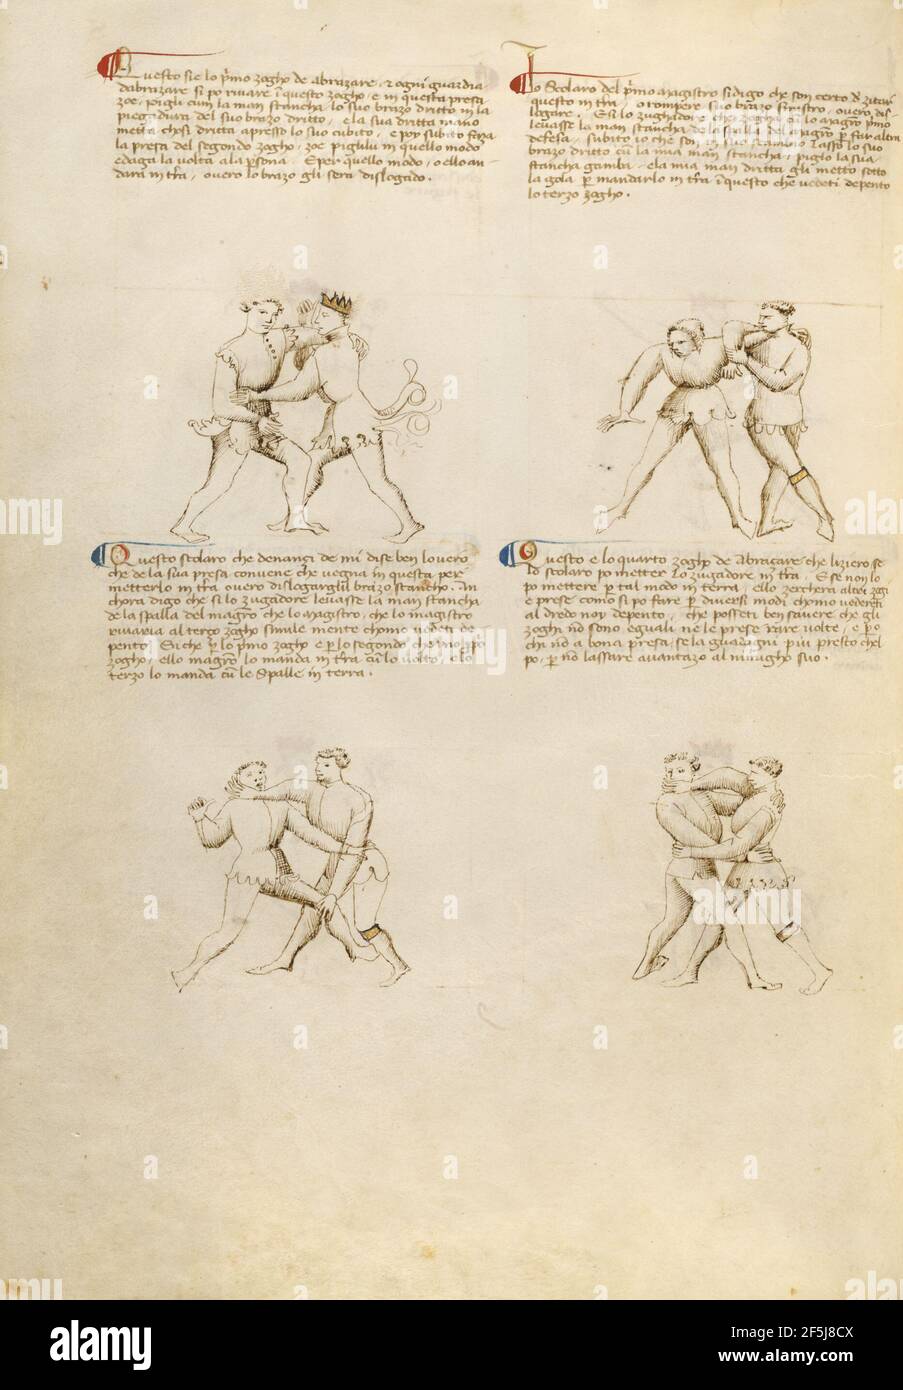 Questo sie lo p̃mo zogho de abrazare, ⁊ ogni guardia
dabrazare si po rivare ĩ questo zogho, e in questa presa
zoe, pigli cum la man stancha lo suo brazo dritto in la
piegadura del suo brazo dritto, e la sua dritta mano
metta chosi dritta apresso lo suo cubito, e poy subito faza
la presa del segondo zogho, zoe piglilu in quello modo
e daga la volta a la p̃sona. E per quello modo, o ello an-
dara in tr̃a, overo lo brazo gli sera dislogado.
Lo Scolaro del p̃mo magistro si digo che son certo de zitar
questo in tr̃a, o rompere suo brazo sinistro, overo dis-
logare. E si lo zughadore che zogha cũ lo magro p̃mo
levasse la man stancha de la spalla del magrõ p̃ far altra
defesa, subito io che son in suo scambio lasso lo suo
brazo dritto cum la mia man stancha, e piglo la sua
stancha gamba, e la mia man dritta gli metto sotto
la gola p̃ mandarlo in tr̃a ĩ questo che vedeti depento
lo terzo zogho.
Questo scolaro che denançi de mi dise ben lo vero
che de la sua presa convene che vegna in questa per
metterlo in terra overo dislogargli 'l brazo stancho. An
chora digo che si lo zugadore levasse la man stancha
de la spalla del magr̃o che lo magistro, che lo magistro
rivaria al terço zogho simile mente chomo vedeti de
pento. Si che p̃ lo p̃mo zogho e p̃ lo segondo che un ppõ
zogho, ello magrõ lo manda in tr̃a cũ lo volto, e lo
terzo lo manda cũ le Spalle in terra.
Questo e lo quarto zogho de Abraçare che liziero se
lo scolaro po metter lo zugadore in tr̃a. E se non lo
po mettere p̃ tal modo in terra, ello zerchera altri zogi
e prese como si po fare p̃ diversi modi chomo vederen
al dredo noy depento, che posseti ben savere che gli
zoghi nõ sono eguali ne le prese rare volte, e p̃ o
chi nõ a bona presa se la guadagni piu presto che 'l
po, p̃ nõ lassare avantazo al nimigho suo.
alamy
a
alamy
Image ID: 2F5J8CX
www.alamy.com